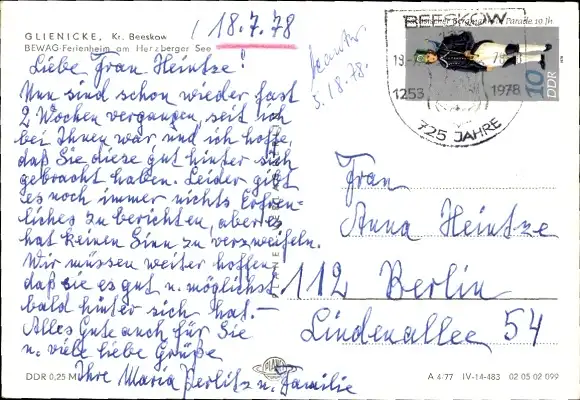 GLIENICKE, Kr. Beeskow
BEWAG-Ferienheim am Herzberger See
18.7.78
Liebe Frau Heintze!
Nun sind schon wieder fast
2 Wochen vergangen, seit ich
bei Ihnen war und ich hoffe,
daß Sie diese gut hinter sich
gebracht haben. Leider gibt
es noch immer nichts Erfreu-
liches zu berichten, aber es
hat keinen Sinn zu verzweifeln.
Wir müssen weiter hoffen,
daß sie es gut u. möglichst
bald hinter sich hat. —
Alles Gute auch für Sie
u. viele liebe Grüße
Ihre Maria Perlitz u. Familie
3.18.78.
BEESKOW
1253 1978
725 JAHRE
Parade 19. Jh
10
DDR
Frau
Anna Heintze
112 Berlin
Lindenallee 54
PLANET
DDR 0,25 M
A 4/77 IV-14-483 02 05 02 099